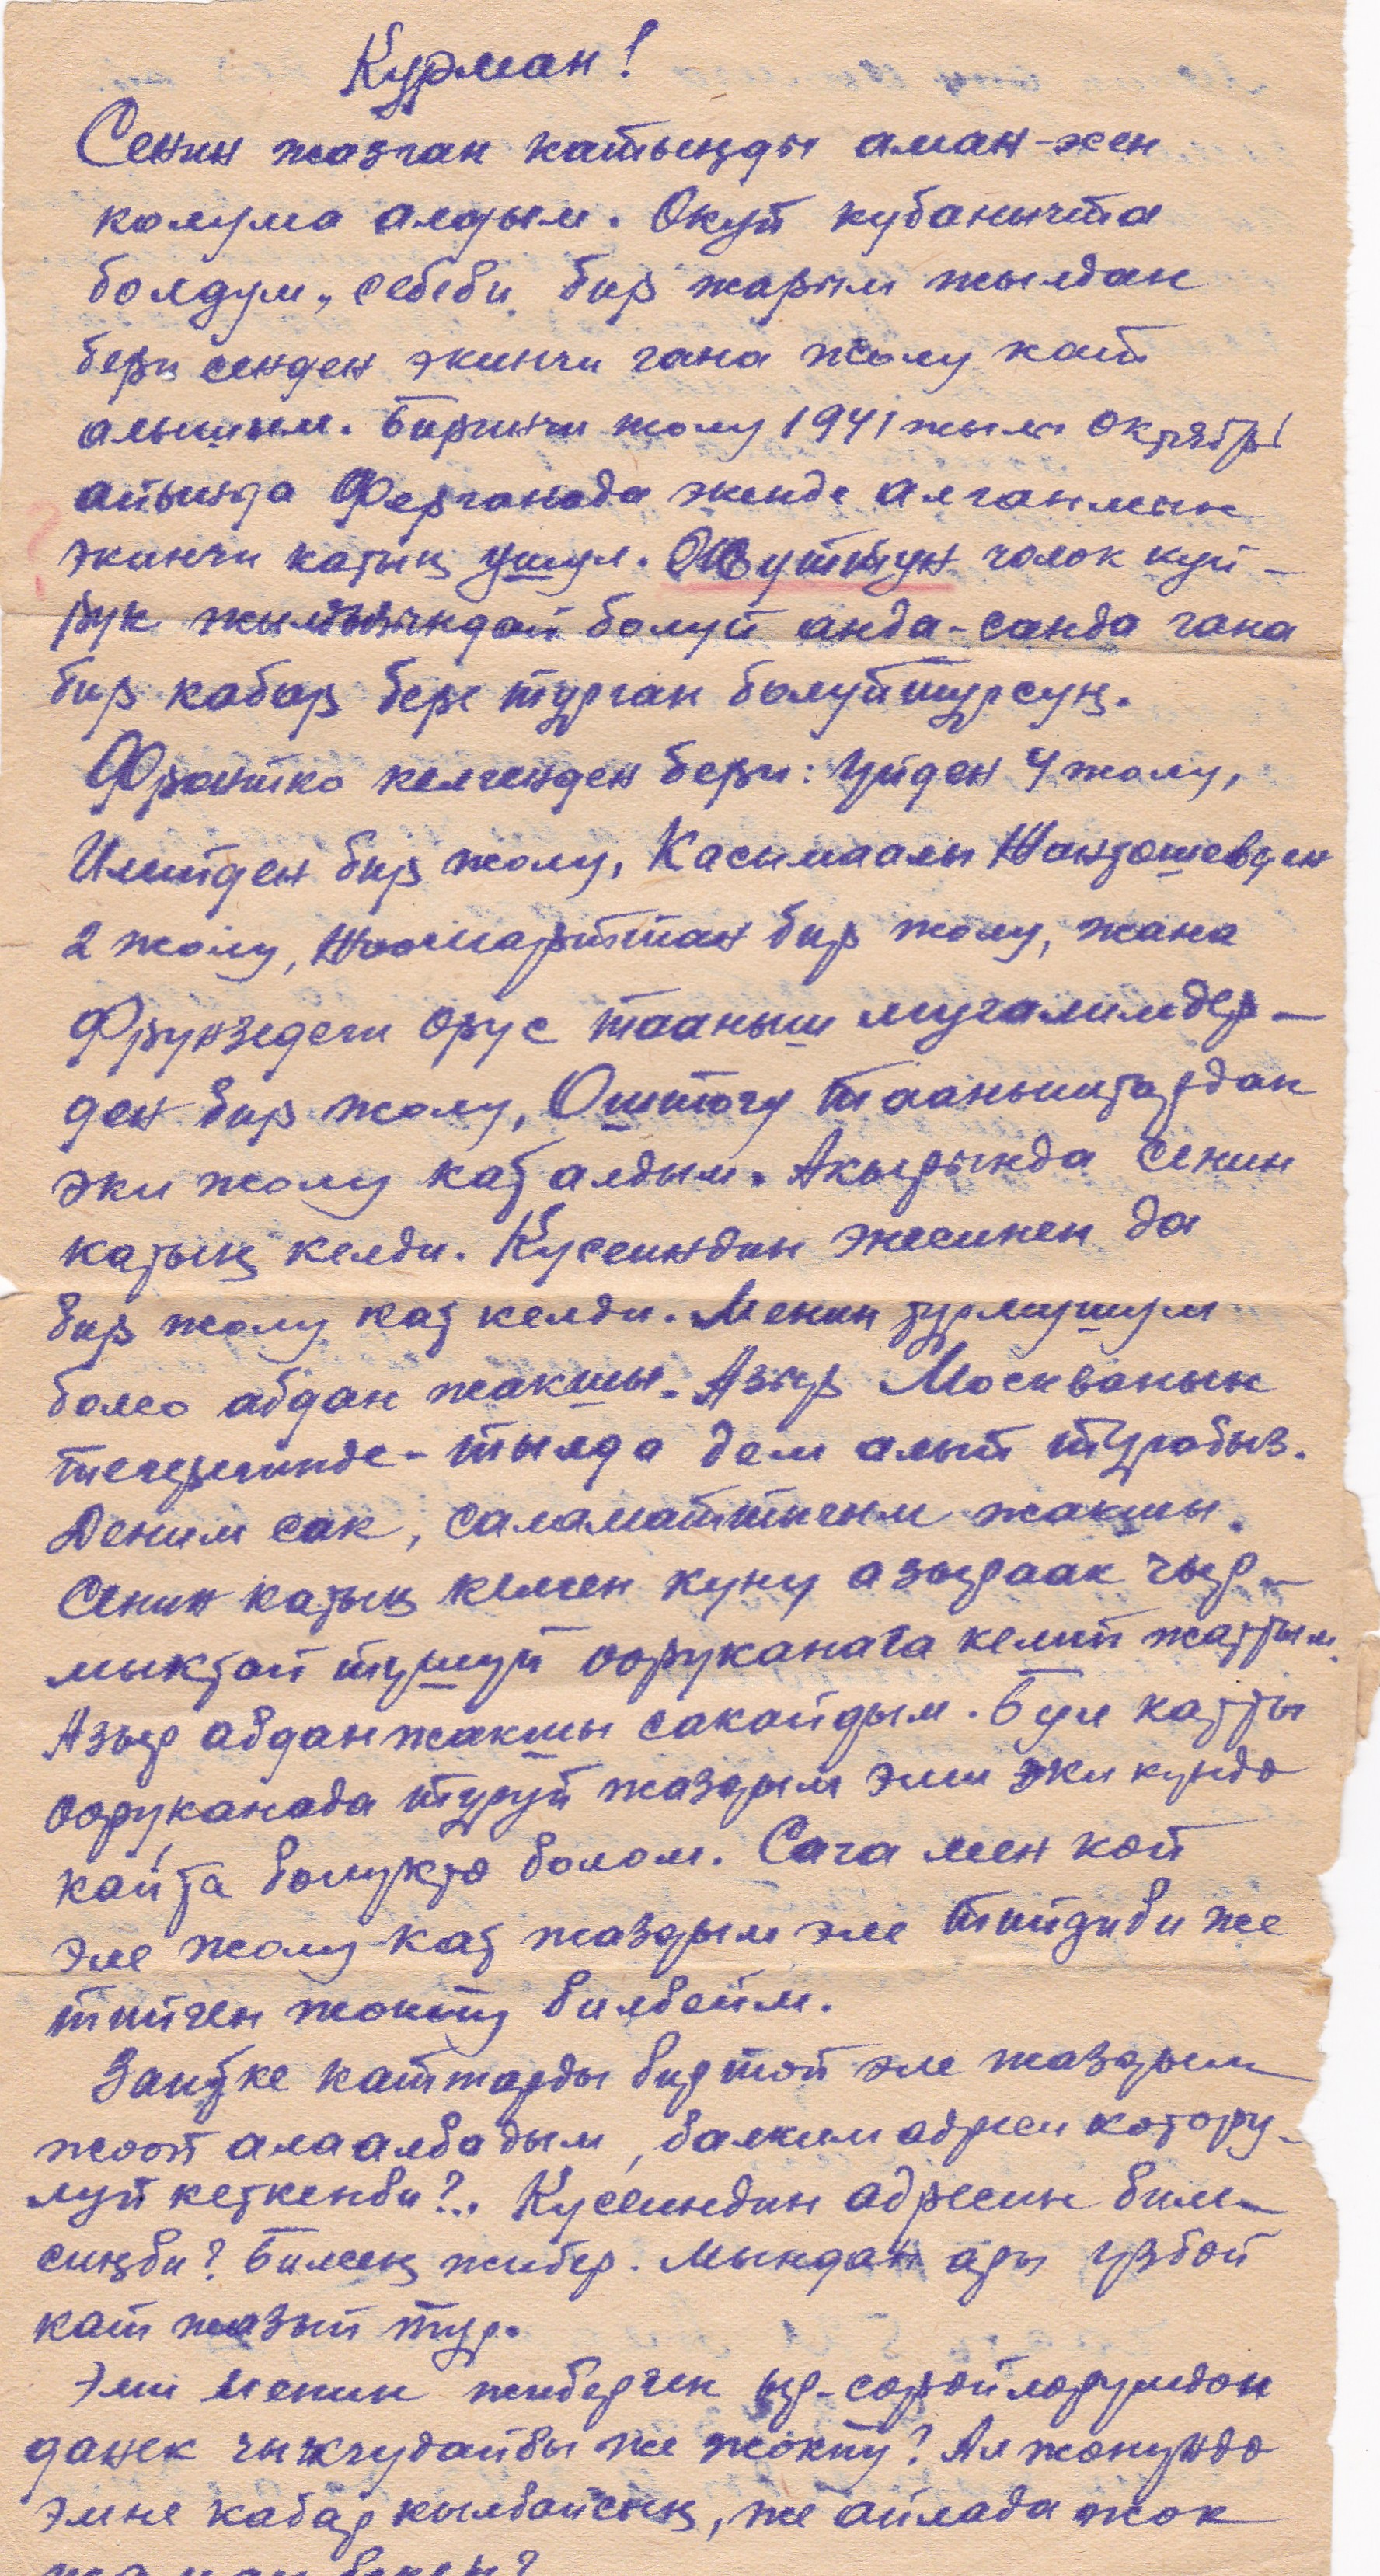 Курман!
Сенин жазган катыңды аман-эсен
колума алдым. Окуп кубанычта
болдум, себеби бир жарым жылдан
бери сенден экинчи гана жолу кат
алышым. Биринчи жолу 1941 жылы Октябрь
айында Ферганада экенде алганмын
экинчи катың ушул. чолок куй-
рук жылдызындай болуп анда-санда гана
бир кабар бере турган болуптурсуң.
Фронтко келгенден бери: Үйден 4 жолу,
бир жолу, Касымаалы Жантошевден
2 жолу, Жоомарттан бир жолу, жана
Фрунзедеги орус тааныш мугалимдер-
ден бир жолу, Оштогу тааныштардан
эки жолу кат алдым. Акырында сенин
катың келди. Кусеиндин эжесинен да
бир жолу кат келди. Менин турмушум
болсо абдан жакшы. Азыр Москванын
тегерегинде - тылда дем алып турабыз.
Деним сак, саламаттыгым жакшы.
Сенин катың келген куну азыраак чыр-
мыктап түшүп ооруканага келип жаттым.
Азыр абдан жакшы сакайдым. Бул катты
ооруканада туруп жаздым эми эки кундо
кайта болукто болом. Сага мен көп
эле жолу кат жаздым эле тийдиби же
тийген жокпу билбейм.
каттарды бир топ эле жаздым
жооп ала албадым, балким адреси котору-
луп кеткенби?.. Кусеиндин адресин бил-
сиңби? Билсең жибер. Мындан ары үзбөй
кат жазып тур.
Эми менин жиберген ыр-сорөйлорумдон
данек чыкчудайбы же жокпу? Ал жөнүндө
эмне кабар кылбайсың, же айлада жок